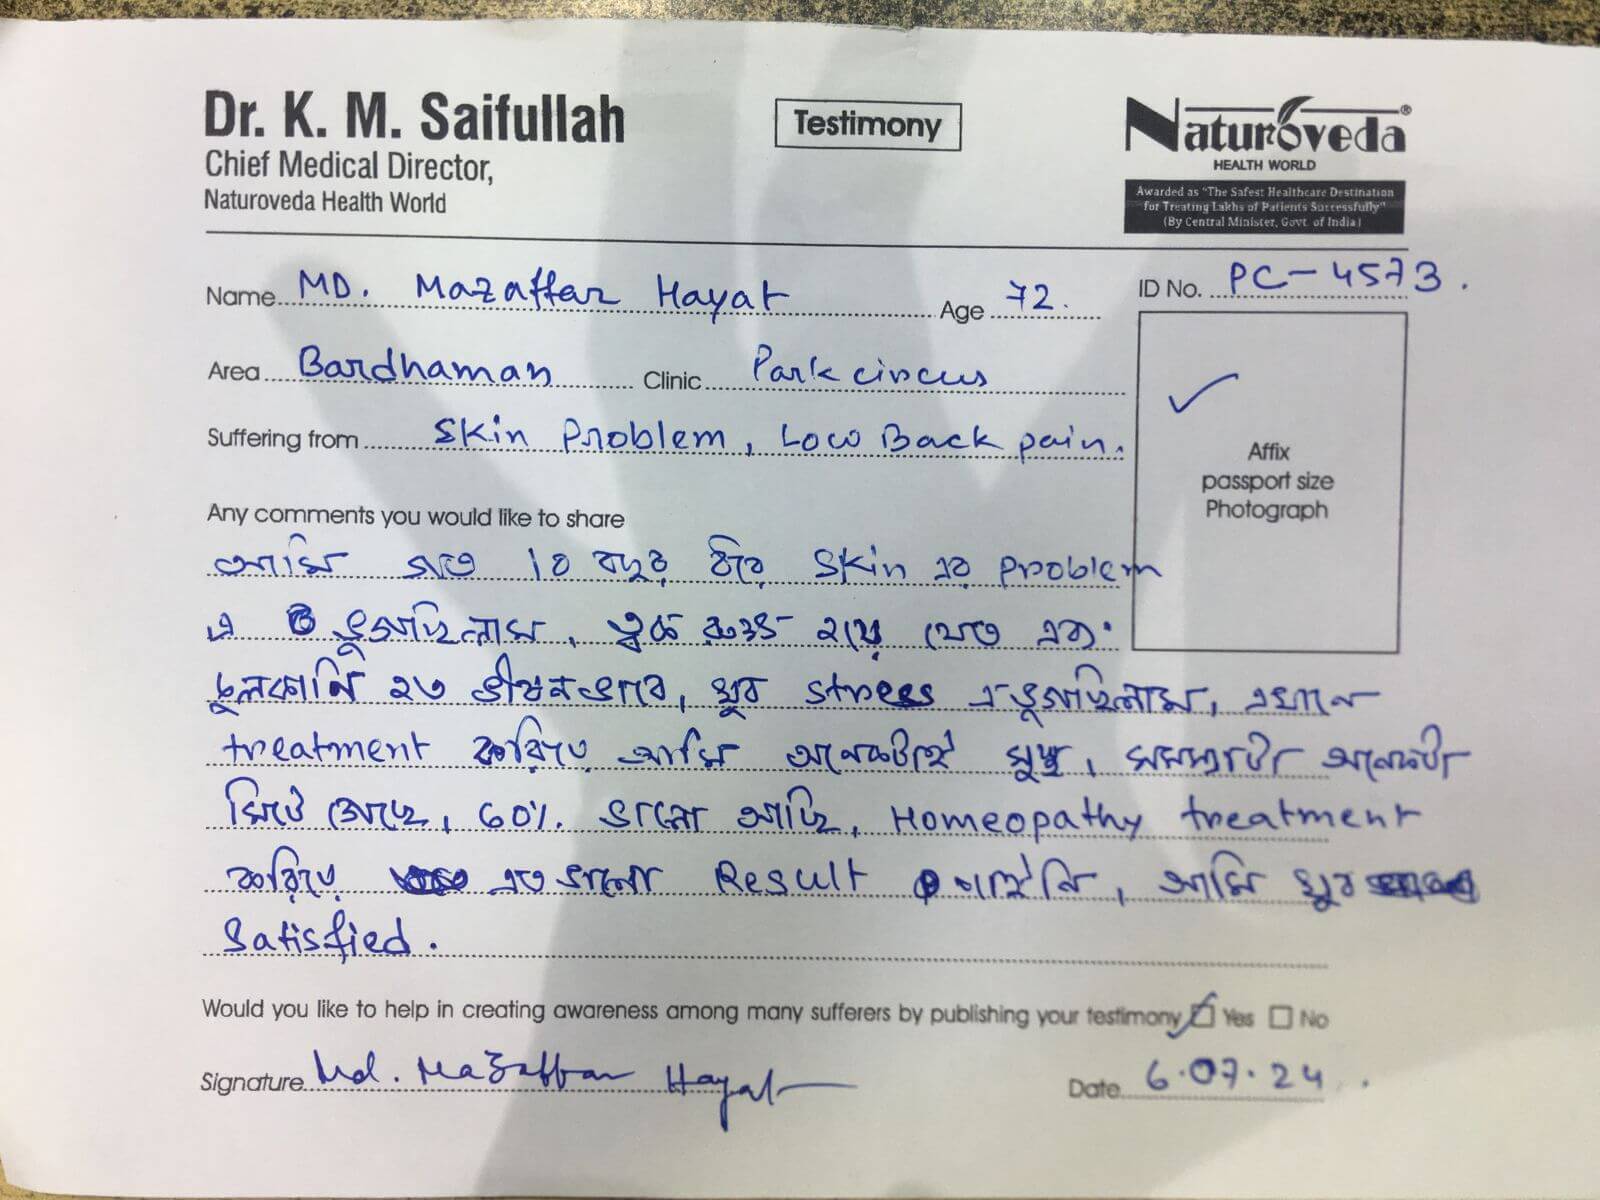 Dr. K. M. Saifullah
Chief Medical Director,
Naturoveda Health World
Testimony
Naturoveda®
HEALTH WORLD
Awarded as "The Safest Healthcare Destination
for Treating Lakhs of Patients Successfully"
(By Central Minister, Govt. of India)
Name MD. Mazaffar Hayat Age 72.
ID No. PC-4573.
Area Bardhaman Clinic Park circus
Suffering from Skin Problem, Low Back pain.
Affix
passport size
Photograph
Any comments you would like to share
আমি গত 10 বছর ধরে Skin এর Problem
এ ভুগছিলাম, ত্বক রুক্ষ হয়ে যেত এবং
চুলকানি হত ভীষনভাবে, খুব stress এ ভুগছিলাম, এখানে
treatment করিয়ে আমি অনেকটাই সুস্থ, সমস্যাটা অনেকটা
মিটে গেছে, 60%. ভালো আছি, Homeopathy treatment
করিয়ে এত ভালো Result পাইনি, আমি খুব
Satisfied.
Would you like to help in creating awareness among many sufferers by publishing your testimony Yes No
Signature Md. Mazaffar Hayat Date 6.07.24.